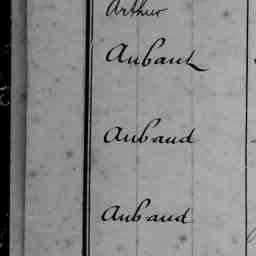 Arthur
Aubault
Aubaud
Aubaud